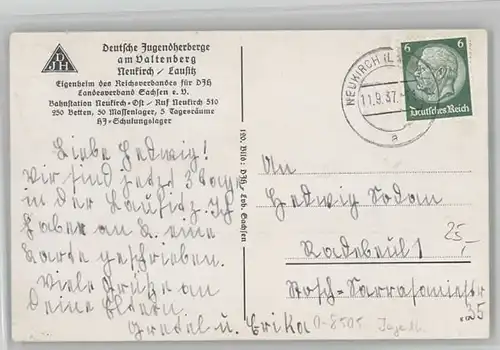 Deutsche Jugendherberge
am Valtenberg
Neukirch / Lausitz
Eigenheim des Reichsverbandes für DJH
Landesverband Sachsen e. V.
Bahnstation Neukirch-Ost / Ruf Neukirch 510
250 Betten, 50 Massenlager, 5 Tagesräume
HJ-Schulungslager
DJH
Liebe Hedwig!
Wir sind jetzt 3 Tage
in der Lausitz. Ich
habe an K. eine
Karte geschrieben.
Viele Grüße an
Deine Eltern
Gretel u. Erika
120. Bild: DJH / Lvb. Sachsen
NEUKIRCH (L
11.9.37.
a
6 6
Deutsches Reich
An
Hedwig
Radebeul 1
35
25,-
0-8505